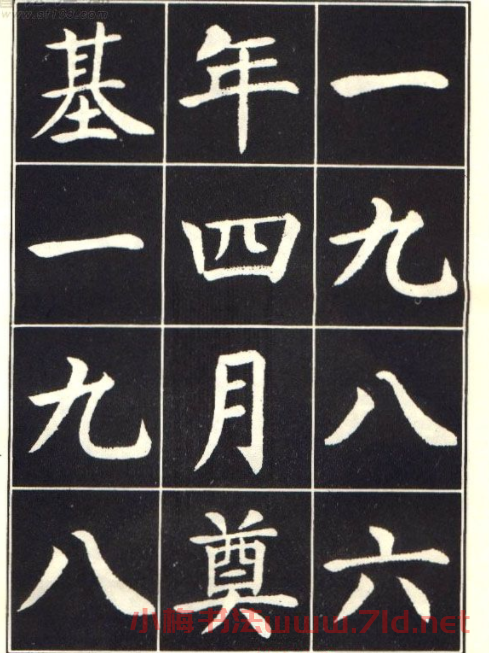 一九八六
年四月奠
基一九八
小梅书法www.7ld.net